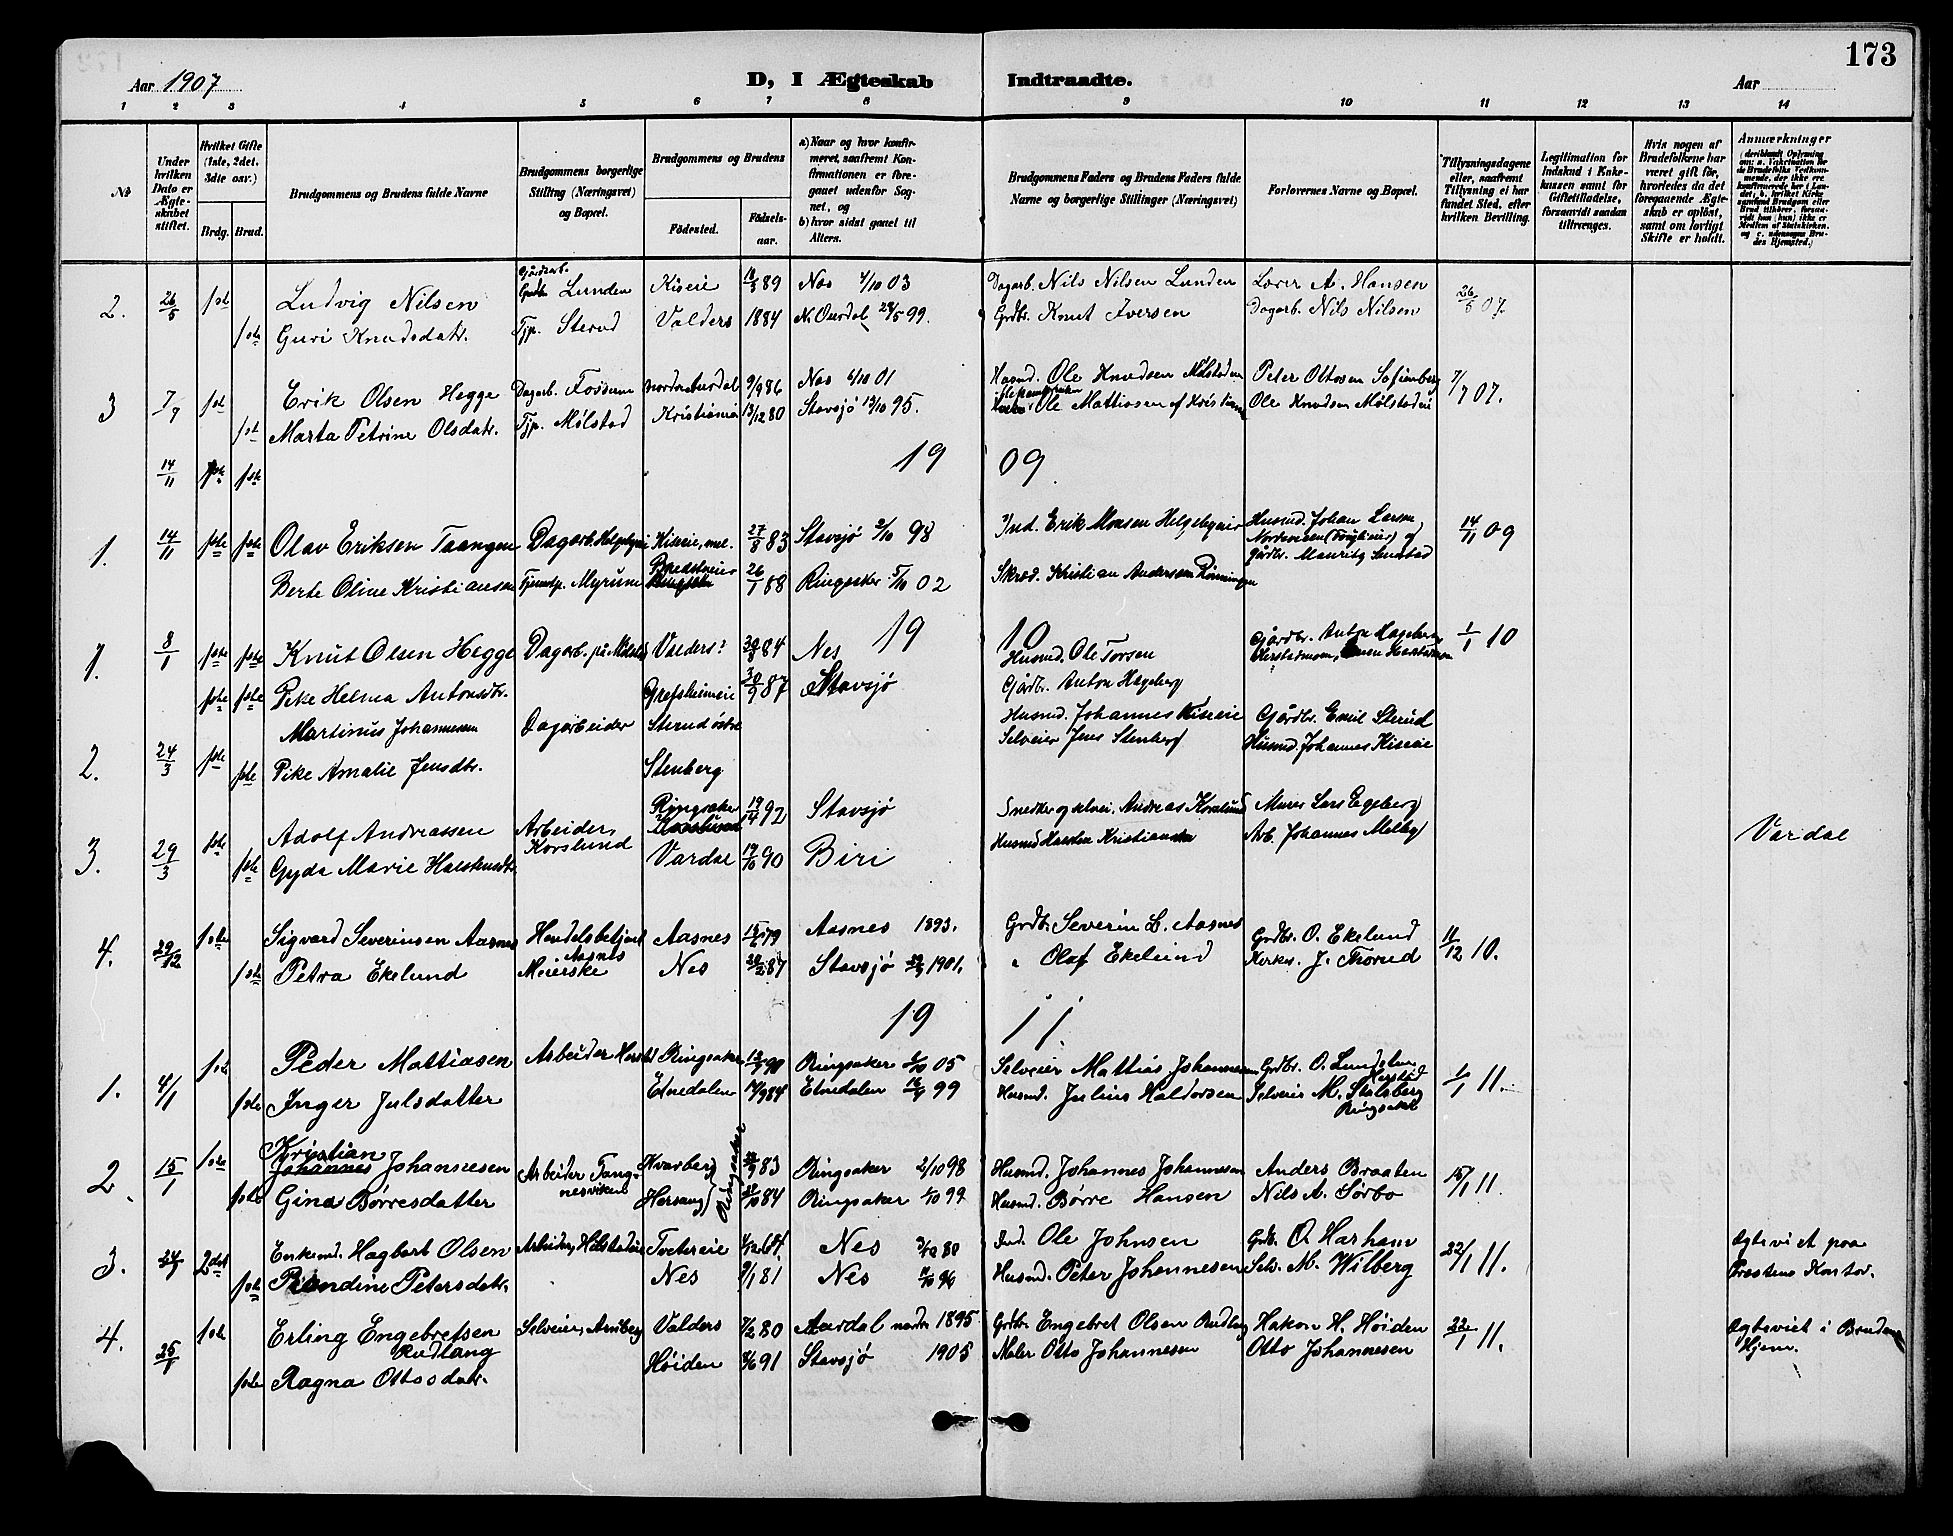 173
Aar 1907
D, I Ægteskab Indtraadte.
Aar
1 2 3 4 5 6 7 8 9 10 11 12 13 14
Nr
Under hvilken Dato er Ægteskabet stiftet.
Hvilket Gifte (1ste, 2det, 3die osv.)
Brdg. Brud.
Brudgommens og Brudens fulde Navne
Brudgommens borgerlige Stilling (Næringsvei) og Bopæl.
Brudgommens og Brudens
Fødested.
Fødselsaar.
a) Naar og hvor konfirmeret, saafremt Konfirmationen er foregaaet udenfor Sognet, og
b) hvor sidst gaaet til Alters.
Brudgommens Faders og Brudens Faders fulde Navne og borgerlige Stillinger (Næringsvei)
Forlovernes Navne og Bopæl.
Tillysningsdagene eller, saafremt Tillysning ei har fundet Sted, efter hvilken Bevilling.
Legitimation for Indskud i Enkekassen samt for Giftetilladelse, forsaavidt saadan tiltrænges.
Hvis nogen af Brudefolkene har været gift før, hvorledes da det foregaaende Ægteskab er opløst, samt om lovligt Skifte er holdt.
Anmærkninger
2. 26/5 1ste Ludvig Nilsen Gårdarb. Lunden Kiseie 18/3 89 Nes 4/10 03 Dagarb. Nils Nilsen Lunden Lærer A. Hansen 26/5 07.
1ste Guri Knudsdatr. Tjp. Sterud Valders 1884 N. Aurdal 28/5 99. Grdbr. Knut Iversen Dagarb. Nils Nilsen
3 7/7 1ste Erik Olsen Hegge Dagarb. Fossum Nordre Aurdal 9/9 86 Nes 6/10 01 Husmd. Ole Knudsen Mölstadeie Peter Ottosen Sofienberg 7/7 07.
1ste Marta Petrine Olsdatr. Tjp. Mölstad Kristiania 13/12 80 Stavsjö 13/10 95. Ole Mattiasen af Kristiania Ole Knudsen Mölstadeie
14/11 1ste 1ste
1909
1. 14/11 1ste 1ste Olav Eriksen Taangen Dagarb. Helgebyeie Kiseie 27/8 83 Stavsjö 2/10 98 Ind. Erik Monsen Helgebyeie Husmd. Johan Larsen 14/11 09
Gårdbr. Mauritz Sundstad
Berte Oline Kristiansen Tjenestp. Myrum Bredstueie 26/1 88 Ringsaker 5/10 02 Skræd. Kristian Andersen Rönningen
1910
1. 8/1 1ste 1ste Knut Olsen Hegge Dagarb. på Mölstad Valders? 84 Nes Husmd. Ole Torsen Gårdbr. Anton Hageberg 1/1 10
1ste 1ste Pike Helma Antonsdtr. Grefsheimeie 30/9 87 Stavsjö Gårdbr. Anton Hageberg
Martinus Johannesen Dagarbeider Sterud östre Husmd. Johannes Kiseeie Gårdbr. Emil Sterud
2. 24/3 1ste 1ste Pike Amalie Jensdtr. Stenberg Selveier Jens Stenberg Husmd. Johannes Kiseie
3. 29/3 1ste Adolf Andreassen Arbeider, Korslund Ringsaker 92 Stavsjö Snedker og selvei. Andreas Korslund Murer Lars Egeberg Vardal
1ste Gyda Marie Halstensdtr. Vardal 19/10 90 Biri Husmd Halsten Kristiansen Arb. Johannes Melby
4. 29/12 1ste Sigvard Severinsen Aasnes Handelsbetjent Aasnes Aasnes 79 Aasnes 1893. Grdbr. Severin L. Aasnes Grdbr. O. Ekelund 11/12 10.
1ste Petra Ekelund Meierske Nes 87 Stavsjö 1901. " Olaf Ekelund Kirkes. J. Thorud
1911
1. 4/1 1ste Peder Mattiasen Arbeider Herstad Ringsaker 90 Ringsaker 05 Selveier Mattias Johannesen Grdbr. O. Lundsten Herstad 1/1 11.
1ste Inger Julsdatter Etnedalen 84 Etnedalen 99 Husmd. Julius Haldorsen Selveier M. Stalsberg Ringsaker
2. 15/1 1ste Kristian Johannes Johannesen Arbeider Tangnesviken Kvarberg Ringsaker 83 Ringsaker 2/10 98 Husmd. Johannes Johannesen Anders Braaten 15/1 11.
1ste Gina Börresdatter Hersaug 84 Ringsaker 1/10 99 Husmd. Börre Hansen Nils A. Sörbo
3. 2det Enkemd. Hagbart Olsen Arbeider, Mölstadeie Toetereie 64. Nes 3/10 80 Ind. Ole Johnsen Grdb. O. Harham 22/1 11. Ægteviet paa Præstens Kontor.
1ste Randine Petersdatr. Nes 9/1 81 Nes 96 Husmd. Peter Johannesen Selv. M. Wilberg
4. 25/1 1ste Erling Engebretsen Rudlang Selveier, Arnberg Valders 7/2 80 Aurdal nordre 1895 Grdbr. Engebret Olsen Rudlang Hakon H. Höiden 22/1 11. Ægteviet i Brudens Hjem.
1ste Ragna Ottosdatr. Höiden 91 Stavsjö 1905 Maler Otto Johannesen Otto Johannesen